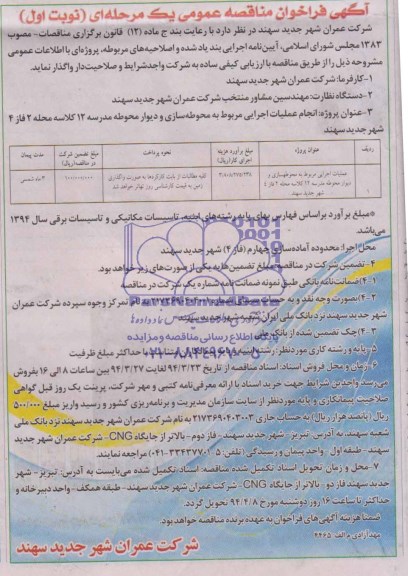 آگهی فراخوان مناقصه عمومی یک مرحله‌ای (نوبت اول)
شرکت عمران شهر جدید سهند در نظر دارد با رعایت بند ج ماده (۱۲) قانون برگزاری مناقصات- مصوب
۱۳۸۳ مجلس شورای اسلامی، آیین‌نامه اجرایی بند یاد شده و اصلاحیه‌های مربوطه، پروژه‌ای با اطلاعات عمومی
مشروحه ذیل را از طریق مناقصه با ارزیابی کیفی ساده به شرکت واجد شرایط و صلاحیت‌دار واگذار نماید.
۱-کارفرما: شرکت عمران شهر جدید سهند
۲-دستگاه نظارت: مهندسین مشاور منتخب شرکت عمران شهر جدید سهند
۳-عنوان پروژه: انجام عملیات اجرایی مربوط به محوطه‌سازی و دیوار محوطه مدرسه ۱۲ کلاسه محله ۲ فاز ۴
شهر جدید سهند
ردیف عنوان پروژه مبلغ برآورد هزینه اجرای کار(ریال) نحوه پرداخت مبلغ تضمین شرکت در مناقصه(ریال) مدت پیمان
۱ عملیات اجرایی مربوط به محوطه‌سازی و دیوار محوطه مدرسه ۱۲ کلاسه محله ۲ فاز ۴ شهر جدید سهند کلیه مطالبات از بابت کارکردها به صورت واگذاری زمین به قیمت کارشناسی روز تهاتر خواهد شد ماه شمسی
*مبلغ برآورد براساس فهارس بهای پایه رشته‌های ابنیه، تاسیسات مکانیکی و تاسیسات برقی سال ۱۳۹۴
می‌باشد.
محل اجرا: محدوده آماده‌سازی چهارم (فاز ۴) شهر جدید سهند
۴-تضمین شرکت در مناقصه: مبلغ تضمین فوق به یکی از صورت‌های زیر خواهد بود.
۱-۴) ضمانت‌نامه بانکی طبق نمونه ضمانت نامه شماره یک شرکت در مناقصه
۲-۴) بصورت وجه نقد و به حساب به نام تمرکز وجوه سپرده شرکت عمران
شهر جدید سهند نزد بانک ملی ایران شعبه شهر جدید سهند
۳-۴) چک تضمین شده از بانک ملی
پایگاه اطلاع رسانی مناقصه و مزایده
۵-پایه و رشته کاری موردنظر: رشته ابنیه حداکثر ظرفیت
۶-زمان و محل فروش اسناد: اسناد مناقصه از تاریخ ۹۴/۳/۲۳ لغایت ۹۴/۳/۲۷ بین ساعات ۸ الی ۱۶ بفروش
می‌رسد واجدین شرایط جهت خرید اسناد با ارائه معرفی‌نامه کتبی و مهر شرکت، پرینت یک روز قبل گواهی
صلاحیت پیمانکاری و پایه موردنظر از سایت سازمان مدیریت و برنامه‌ریزی کشور و رسید واریز مبلغ ۵۰۰/۰۰۰
ریال (پانصد هزار ریال) به حساب جاری ۲۱۷۳۶۹۰۴۰۳۰۰۳ به نام شرکت عمران شهر جدید سهند نزد بانک ملی
شعبه سهند، به آدرس: تبریز - شهر جدید سهند- فاز دوم- بالاتر از جایگاه CNG- شرکت عمران شهر جدید
سهند- طبقه اول- واحد پیمان و رسیدگی (تلفن: ۵-۳۳۴۳۷۷۰۱-۰۴۱) مراجعه نمایند.
۷-محل و زمان تحویل اسناد تکمیل شده مناقصه: اسناد تکمیل شده می‌بایست به آدرس: تبریز- شهر
جدید سهند فاز دو- بالاتر از جایگاه CNG- شرکت عمران شهر جدید سهند- طبقه همکف- واحد دبیرخانه و
حداکثر تا ساعت ۱۶ روز دوشنبه مورخ ۹۴/۴/۸ تحویل گردد.
ضمنا هزینه آگهی‌های فراخوان به عهده برنده مناقصه خواهد بود.
مهد آزادی م الف: ۴۴۶۵
شرکت عمران شهر جدید سهند